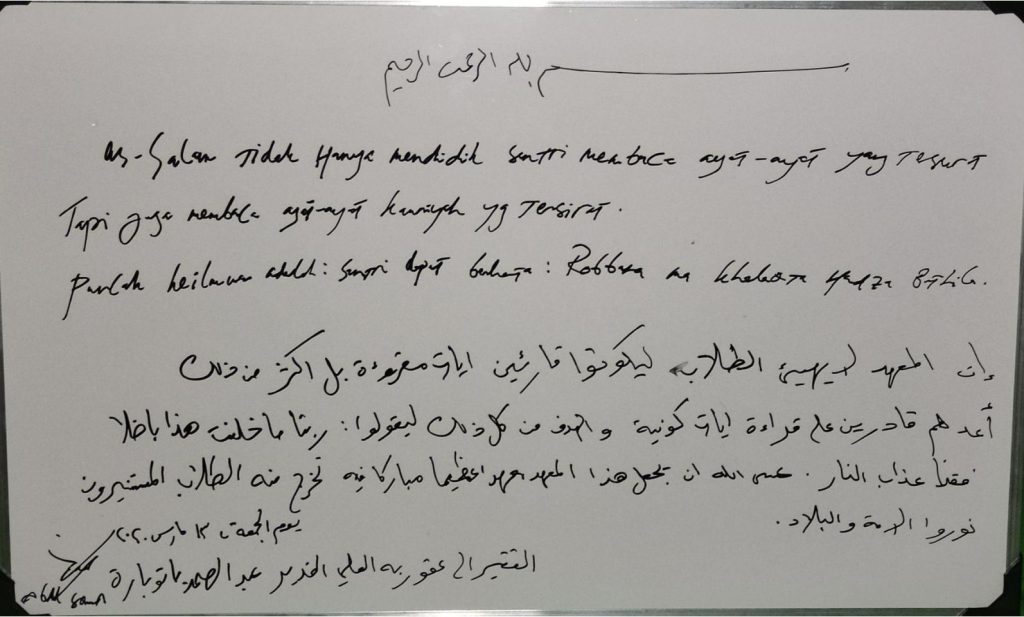 بسم الله الرحمن الرحيم
As-Salam Tidak Hanya mendidik santri membaca ayat-ayat yang Tersurat
Tapi juga membaca ayat-ayat kauniyah yg Tersirat.
Puncak keilmuan adalah: santri dapat berkata: Robbana ma kholaqta Hadza BATHILA.
إن المعهد لا يهيئ الطلاب ليكونوا قارئين ايات مقروءة بل اكثر من ذلك
أعدهم قادرين على قراءة ايات كونية والهدف من كل ذلك ليقولوا: ربنا ما خلقت هذا باطلا
فقنا عذاب النار. عسى الله ان يجعل هذا المعهد معهدا عظيما مباركا فيه تخرج منه الطلاب المستنيرون
نوروا الامة والبلاد.
يوم الجمعة ١٣ مارس ٢٠٢٠
الفقير الى عفو ربه العلي القدير عبد الصمد